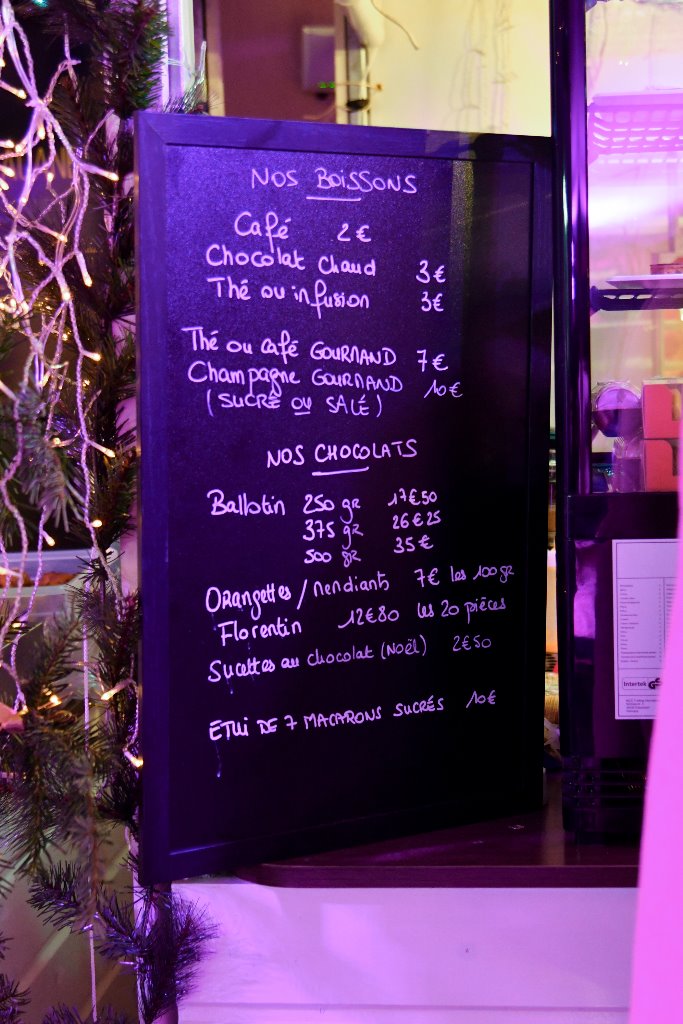 NOS BOISSONS
Café 2€
Chocolat Chaud 3€
Thé ou infusion 3€
Thé ou café GOURMAND 7€
Champagne GOURMAND 10€
(SUCRÉ OU SALÉ)
NOS CHOCOLATS
Ballotin 250 gr 17€50
375 gr 26€25
500 gr 35€
Orangettes/mendiants 7€ les 100 gr
Florentin 12€80 les 20 pièces
Sucettes au chocolat (Noël) 2€50
ETUI DE 7 MACARONS SUCRÉS 10€
Intertek